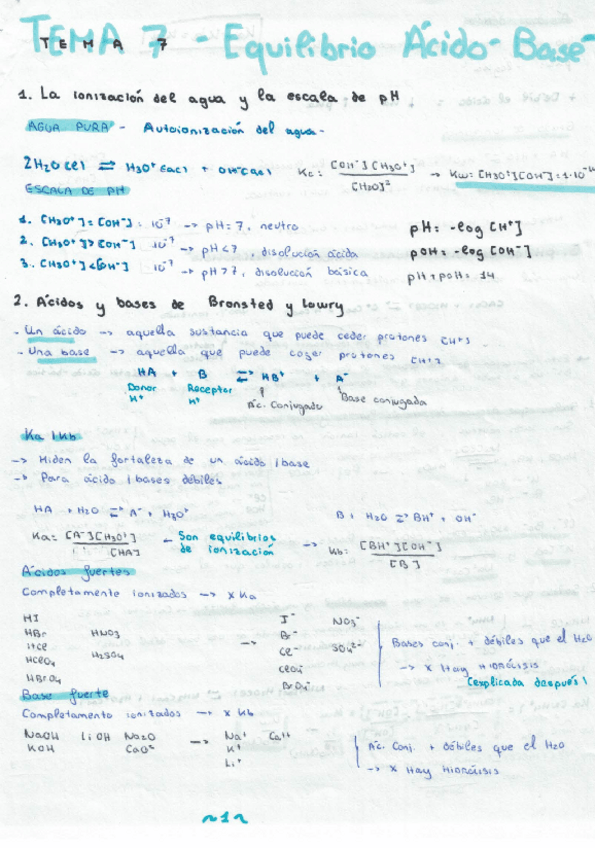 TEMA 7 - Equilibrio Ácido-Base
TEMA 7
1. La ionización del agua y la escala de pH
AGUA PURA - Autoionización del agua-
2H2O(l) ⇄ H3O+(ac) + OH-(ac) Kc = [OH-][H3O+] / [H2O]² → Kw = [H3O+][OH-] = 1·10-14
ESCALA DE PH
1. [H3O+] = [OH-] : 10-7 → pH = 7, neutro pH = -log [H+]
2. [H3O+] > [OH-] 10-7 → pH < 7, disolución ácida pOH = -log [OH-]
3. [H3O+] < [OH-] 10-7 → pH > 7, disolución básica pH + pOH = 14
2. Ácidos y bases de Bronsted y Lowry
- Un ácido → aquella sustancia que puede ceder protones (H+)
- Una base → aquella que puede coger protones (H+)
HA + B ⇄ HB+ + A-
Donor H+ Receptor H+ Ác. Conjugado Base conjugada
Ka / Kb
→ Miden la fortaleza de un ácido / base
→ Para ácido / bases débiles
HA + H2O ⇄ A- + H3O+ B + H2O ⇄ BH+ + OH-
Ka = [A-][H3O+] / [HA] ← Son equilibrios de ionización → Kb = [BH+][OH-] / [B]
Ácidos fuertes
Completamente ionizados → x Ka
HI I- NO3-
HBr HNO3 Br- Bases conj. + débiles que el H2O
HCl H2SO4 → Cl- SO4 2- → x Hay Hidrólisis
HClO4 ClO4- (explicada después)
HBrO4 BrO4-
Base fuerte
Completamente ionizados → x Kb
NaOH LiOH Na2O → Na+ Ca2+ Ác. Conj. + débiles que el H2O
KOH CaO K+
Li+ → x Hay Hidrólisis
~1~